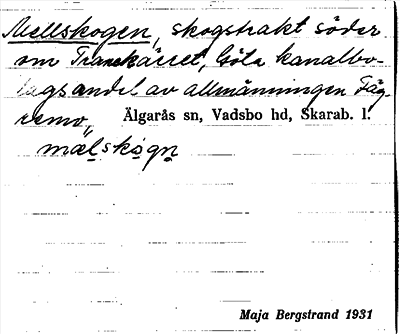 Mellskogen, skogstrakt söder
om Trankärret, Göta kanalbo-
lagsandel av allmänningen Fäg-
remo,, Älgarås sn, Vadsbo hd, Skarab. l.
mælskogn
Maja Bergstrand 1931